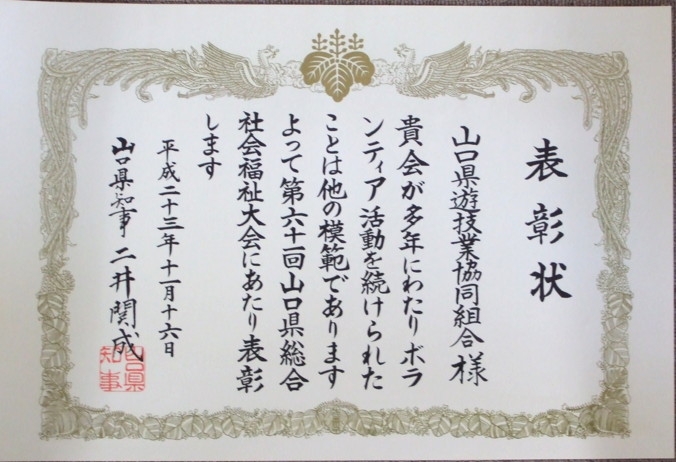 表彰状
山口県遊技業協同組合様
貴会が多年にわたりボラ
ンティア活動を続けられた
ことは他の模範であります
よって第六十一回山口県総合
社会福祉大会にあたり表彰
します
平成二十三年十一月十六日
山口県知事 二井関成
山口県
知事